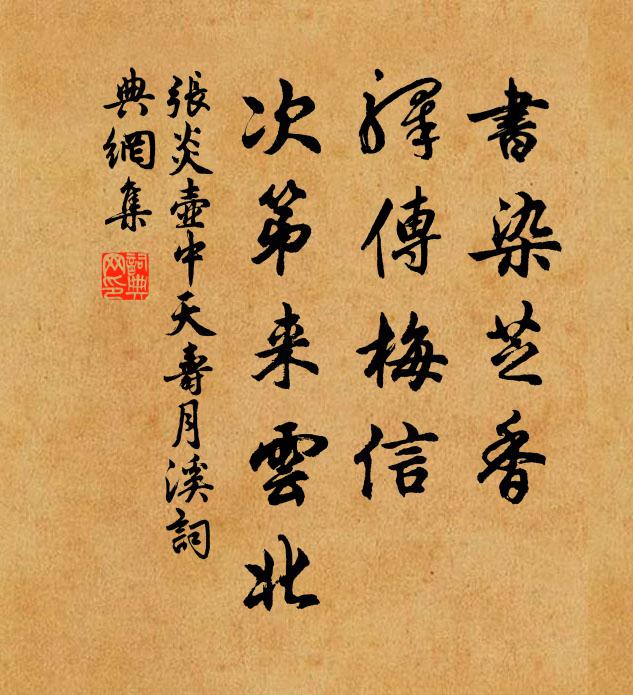 書染芝香
驛傳梅信
次第来雲北
張炎壺中天壽月溪詞
典網集
詞典
网印